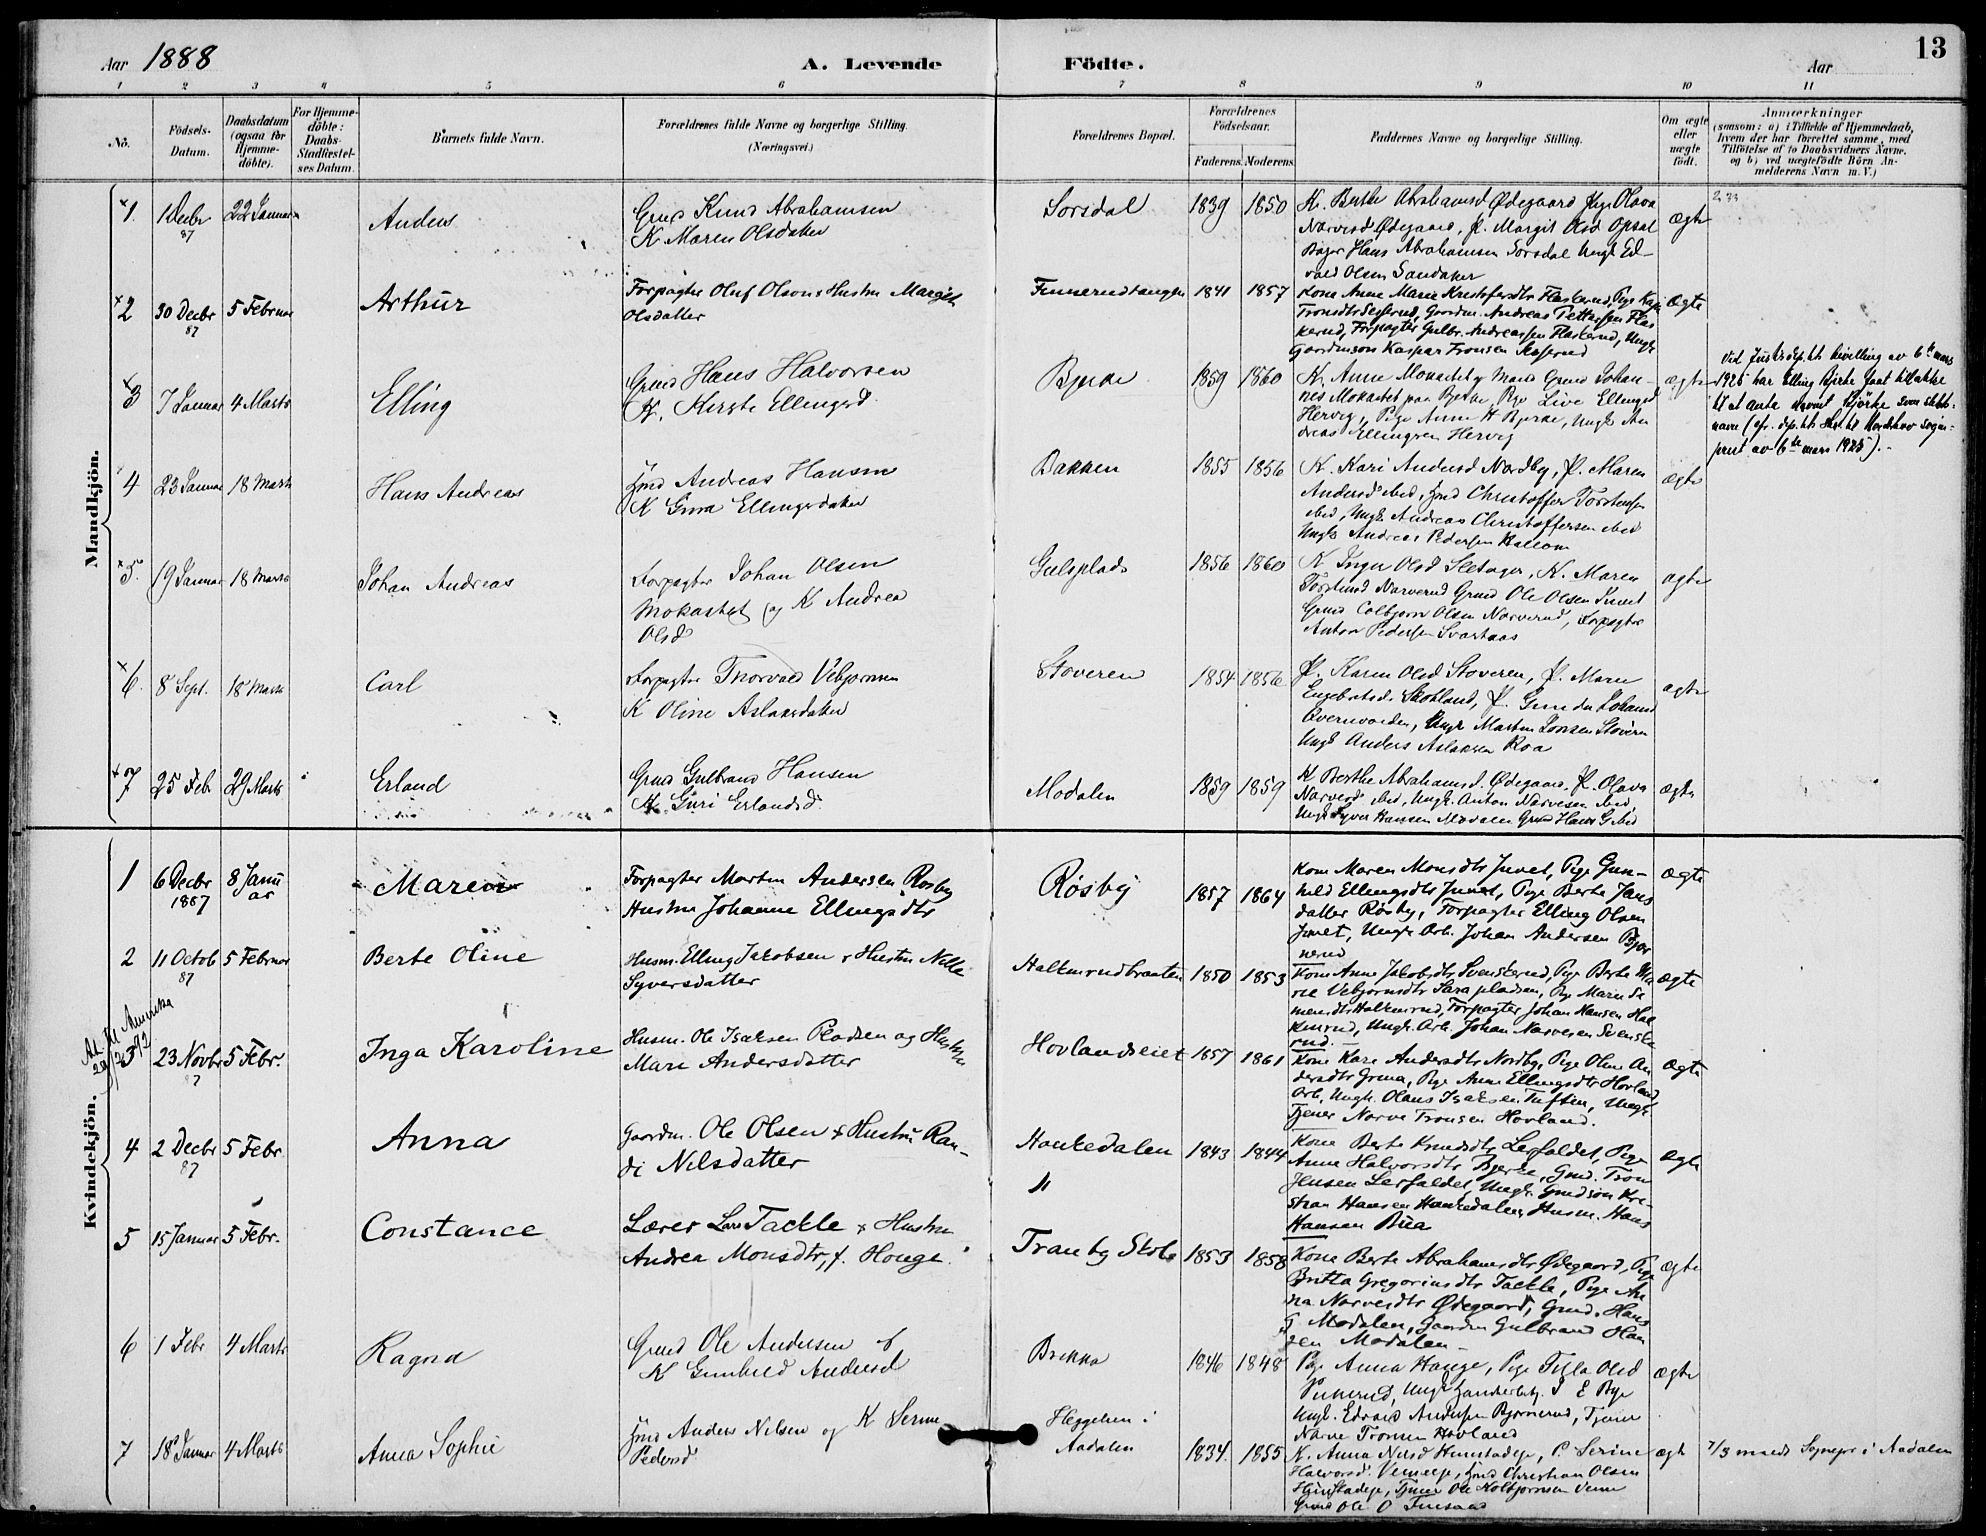 Aar 1888
A. Levende Födte.
Aar
13
1 2 3 4 5 6 7 8 9 10 11
No.
Födsels-Datum.
Daabsdatum (ogsaa for Hjemme-döbte).
For Hjemme-döbte: Daabs-Stadfæstel-ses Datum.
Barnets fulde Navn.
Forældrenes fulde Navne og borgerlige Stilling.
(Næringsvei.)
Forældrenes Bopæl.
Forældrenes Födselsaar.
Faderens. Moderens.
Faddernes Navne og borgerlige Stilling.
Om ægte eller uægte födt.
Anmærkninger
(saasom: a) i Tilfælde af Hjemmedaab, hvem der har forrettet samme, med Tilföielse af to Daabsvidners Navne, og b) ved uægtefödte Börn Anmelderens Navn m. V.)
Mandkjön.
1. 1 Decbr 87 22 Januar Anders
Grud Knud Abrahamsen
K Maren Olsdatter
Sorsdal 1839 1850
K. Berthe Abrahamsd Ødegaard Pige Olava
Narvesd Ødegaard, P. Margit Olsd Opsal
Hans Abrahamsen Sorsdal Ungk Ed-
vald Olsen Sandaker
ægte
2 30 Decbr 87 5 Februar Arthur
Forpagter Oluf Olsen & Hustru Margit
Olsdatter
Finnerudtangen 1841 1857
Kone Anne Marie Kristofersdtr Flaskerud, Pige
Gaardm. Andreas Pettersen Flas
kerud, Forpagter Gulbr. Andreassen Flaskerud, Ungk
Gaardmsøn Kaspar Tronsen
ægte
3 7 Januar 4 Marts Elling
Grud Hans Halvorsen
K. Kirste Ellingsd
Bjerke 1859 1860
K. Anne Mokastet Mand Grud Johan-
nes Mokastet paa Bjerke, Pige Live Ellingsd
Hervig, Pige Anne H Bjerke, Ungk An
dreas Ellingsen Hervig
ægte
Ved Justisdep.ts bevilling av 6te mars
1925 har Elling Bjerke faat tilladelse
til at anta navnet Bjørke som slekts-
navn
prest av 6te mars 1925).-
4 23 Januar 18 Marts Hans Andreas
Andreas Hansen
K Guria Ellingsdatter
Bakken 1855 1856
K. Kari Andersd Nordby, P. Maren
Andersd ibid, Christoffer Torstensen
ibid, Ungk Andreas Christoffersen ibid
Ungk Andreas Pedersen
ægte
5. 19 Januar 18 Marts Johan Andreas
Forpagter Johan Olsen
Mokastet og K Andrea
Olsd
Gulsplads 1856 1860
K Inger Olsd K. Maren
Narverud Grud Ole Olsen Juvet
Grud Colbjørn Olsen Narverud, Forpagter
Anton Pedersen Svartaas
ægte
6. 8 Sept. 18 Marts Carl
Forpagter Thorvald Vebjørnsen
K Oline Aslaksdatter
Støveren 1854 1856
P. Karen Olsd Støveren, P. Maren
Engebretsd. Skotland, P. Gunda Johansd
Ungk Martin Jonsen Støveren
Ungk Anders Aslaksen Roa
ægte
7 25 Feb 29 Marts Erland
Grud Gulbrand Hansen
K. Guri Erlandsd
Modalen 1859 1859
K Berthe Abrahamsd. Ødegaard, P. Olava
Narvesd ibid, Ungk. Anton Narvesen ibid,
Ungk Syver Hansen Modalen Grud Hans G ibid
ægte
Kvindekjön.
1 6 Decbr 1887 8 Januar Maren
Forpagter Morten Andersen Røsby
Hustru Johanne Ellingsdtr
Røsby 1857 1864
Kone Maren Monsdtr Juvet, Pige Gun-
hild Ellingsdtr Juvet, Pige Berte Jans
datter Røsby, Forpagter Elling Olsen
Juvet, Ungk Arb. Johan Andersen Bjør
nerud
ægte
2 11 Octob 87 5 Februar Berte Oline
Husm. Elling Jakobsen & Hustru Nille
Syversdatter
Halkinrudbraaten 1850 1853
Kone Anne Jakobsdtr Svenskerud, Pige Berte Ma
rie Vebjørnsdtr Pige Marie Si
mensdtr Halkinrud, Forpagter Johan Hansen Hal
kinrud, Ungk Arb. Johan Narvesen Svenske
rud.
ægte
3 23 Novbr 87 5 Febr. Inga Karoline
Husm. Ole Isaksen Pladsen og Hustru
Mari Andersdatter
Hovlandseiet 1857 1861
Kone Kari Andersdtr Nordby, Pige Oline An
dersdtr Pige Anne Ellingsdtr Hovland
Arb. Ungk. Olaus Isaksen Tuften, Ungk
Tjener Narve Tronsen Hovland.
ægte
4 2 Decbr 87 5 Febr. Anna
Gaardm. Ole Olsen & Hustru Ran-
di Nilsdatter
Hankedalen 1843 1844
Kone Berte Knudsdtr Lerfaldet, Pige
Anne Halvorsdtr Bjerke, Grud. Tron
Jensen Lerfaldet, Ungk. Grudsøn Kri-
stian Hansen Hankedalen, Husm. Hans
Hansen Bua
ægte
5 15 Januar 5 Febr. Constance
Lærer Lars Tackle & Hustru
Andrea Monsdtr, f. Houge.
Tranby Skole 1853 1858
Kone Berte Abrahamsdtr Ødegaard, Pige
Britta Gregoriusdtr Tackle, Pige An
na Narvesdtr Ødegaard, Grud. Hans
G Modalen, Gaardm Gulbrand Han
sen Modalen
ægte
6 1 Febr 4 Marts Ragna
Grud Ole Andersen &
K Gunhild Andersd
Brekke 1846 1848
Pige Anna Hauge, Pige Tilla Olsd
Ungk Handelsbetj. I E Bye
Ungk. Edvard Andersen Bjørnerud, Tjener
Narve Tronsen Hovland
ægte
7 18 Januar 4 Marts Anna Sophie
Anders Nilsen og K Serine
Pedersd
Heggelien i
Aadalen 1834 1855
K. Anna Nilsd P. Serine
Halvorsd Christian Olsen
Tjener Ole Kolbjørnsen
Grud Ole O
ægte
7/3 meldt Sognepr i Aadalen